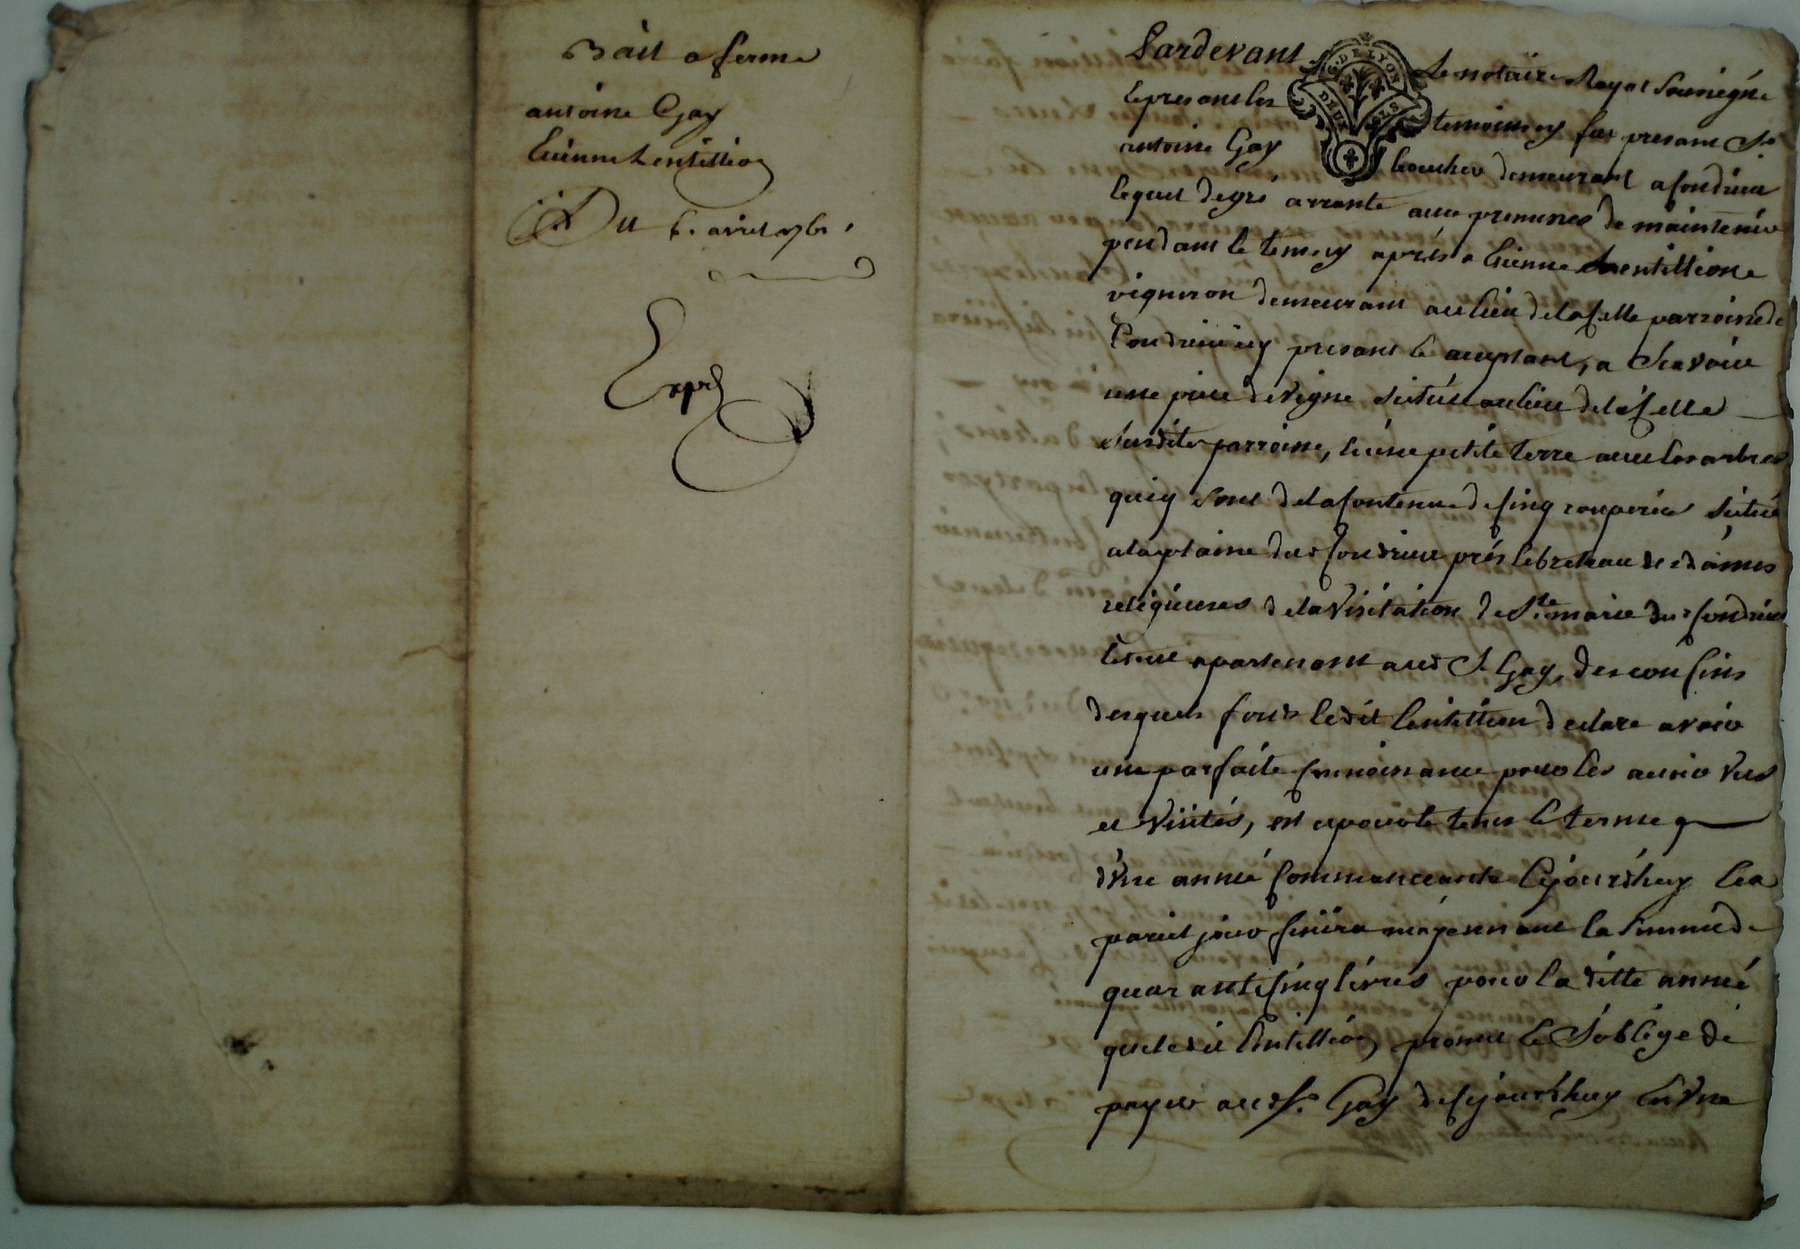 Bail a ferme
antoine Gay
Etienne Lentillion
Du 6. avril 1761.
Expé
Pardevant Le notaire Royal Soussigné
G. DE LYON
DEUX S
et presant les temoins fut presant Sr.
antoine Gay boucher demeurant a Condrieu
lequel de gré arrante avec promesses de maintenir
pendant le temps cy après a Etienne Lentillion
vigneron demeurant au lieu de la celle parroisse de
Condrieu icy presant et acceptant, a Scavoir
une piece de vigne située au lieu de la celle
susdite parroisse, et une petite terre avec les arbres
qui y sont de la contenue de cinq couperées située
a la plaine dud. Condrieu prés le bateau des dames
religieuses de la Visitation de Ste. marie dud. Condrieu
le tout apartenant aud. S. Gay, des confins
desquels fonds ledit Lentillion declare avoir
une parfaite connoissance pour les avoir vus
et visités, est ce pour le tems et terme
d'Une année Commenceante Cejourdhuy et a
pareil jour finira moyennant la Somme de
quarante cinq livres pour la ditte année
que ledit Lentillion promet et S'oblige de
payer aud. Sr. Gay de cejourdhuy en Une